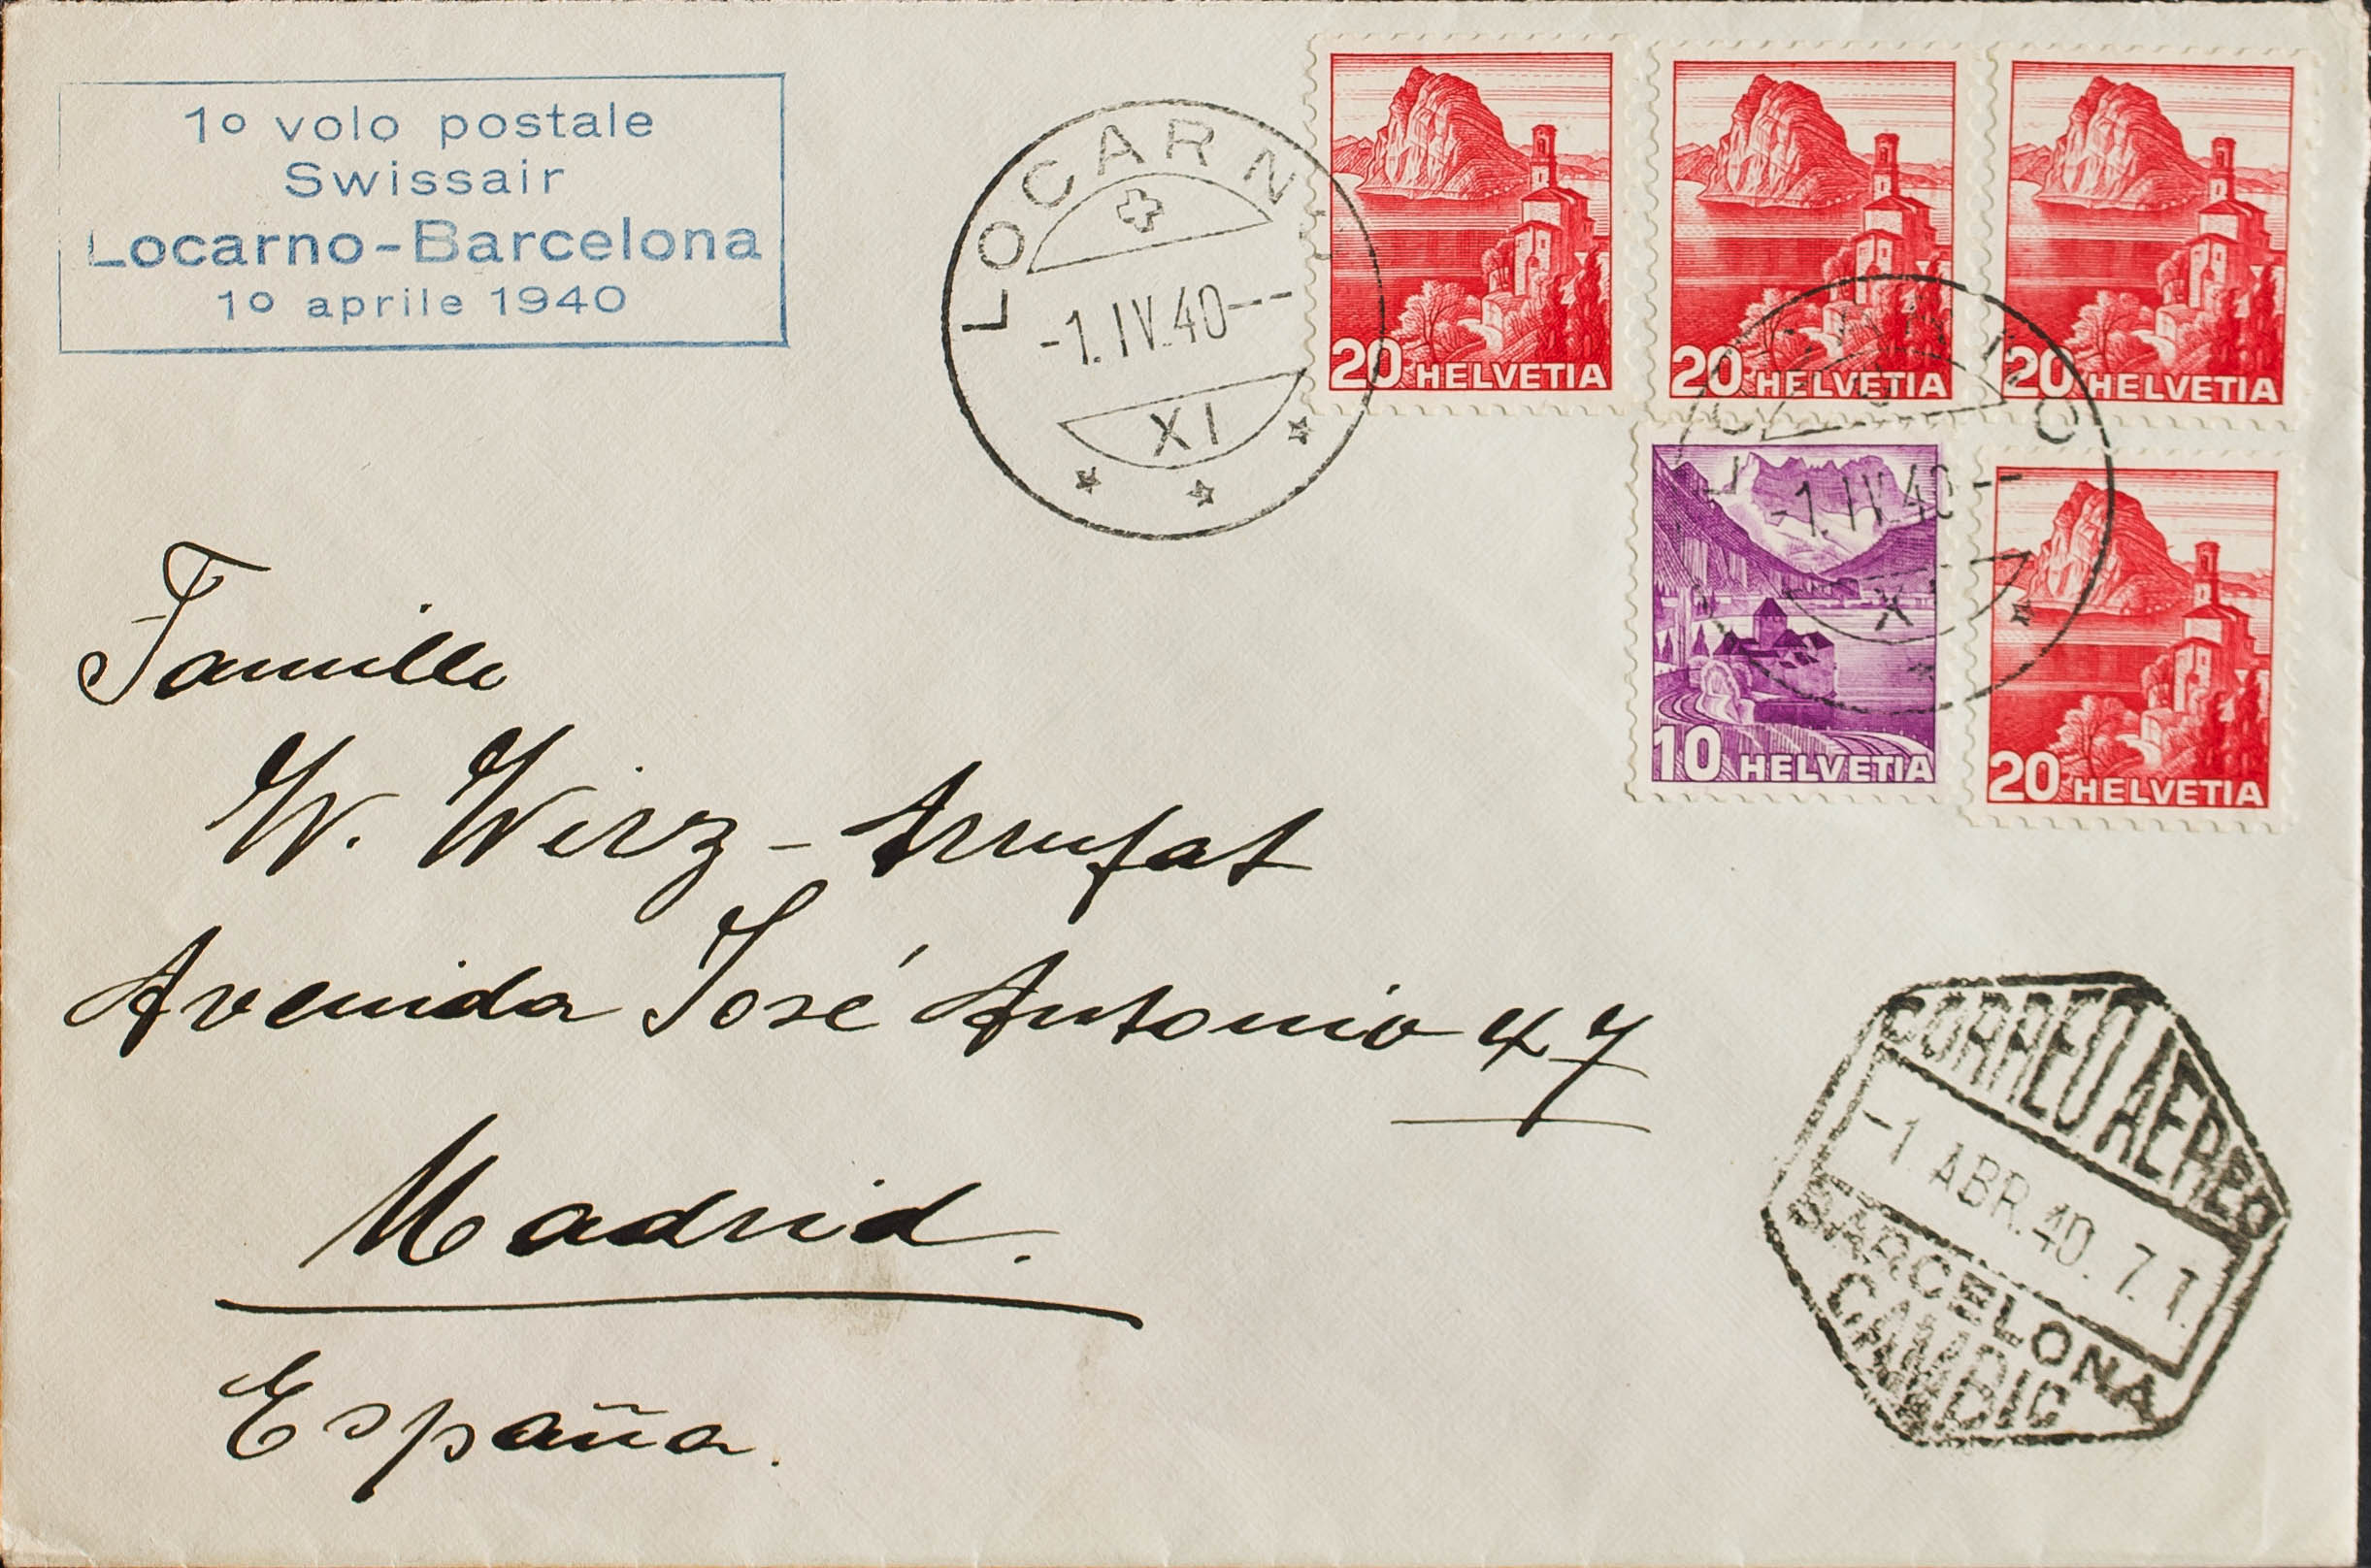 1º volo postale
Swissair
Locarno-Barcelona
1º aprile 1940
LOCARNO
-1.IV.40---
XI
20 HELVETIA
20 HELVETIA
20 HELVETIA
LOCARNO
-1.IV.40--
XI
10 HELVETIA
20 HELVETIA
Famille
W. Wirz-Arrufat
Avenida José Antonio 47
Madrid.
España.
CORREO AEREO
-1.ABR.40. 7.T.
BARCELONA